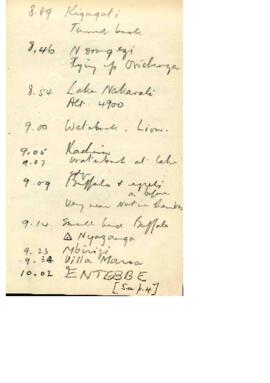 8.39 Kigagati
Turned back
8.46 Nsongezi
Flying up Orichinga
8.54 Lake Nakavali
Alt. 4900
9.00 Waterbuck. Lion.
9.05 Kachira
9.07 Waterbuck at Lake
9.09 Buffalo & egrets
Very near
9.14 Small herd Buffalo
Δ Nyazanga
9.23 Mbirizi
9.34 Villa Maria
10.02 ENTEBBE
[See p.4]